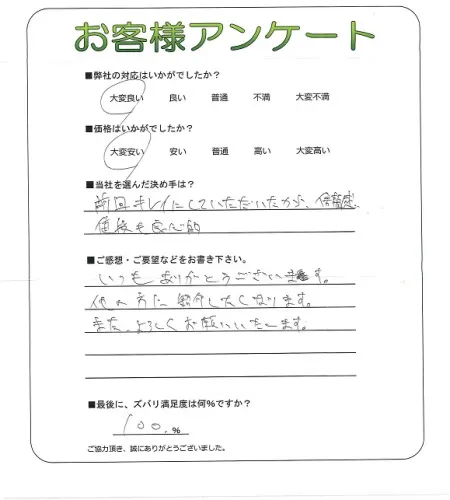 お客様アンケート
■弊社の対応はいかがでしたか?
大変良い 良い 普通 不満 大変不満
■価格はいかがでしたか?
大変安い 安い 普通 高い 大変高い
■当社を選んだ決め手は?
前回キレイにしていただいたから、信頼感
価格も良心的
■ご感想・ご要望などをお書き下さい。
いつもありがとうございます。
他の方に紹介したくなります。
また、よろしくお願いいたします。
■最後に、ズバリ満足度は何%ですか?
100.%
ご協力頂き、誠にありがとうございました。